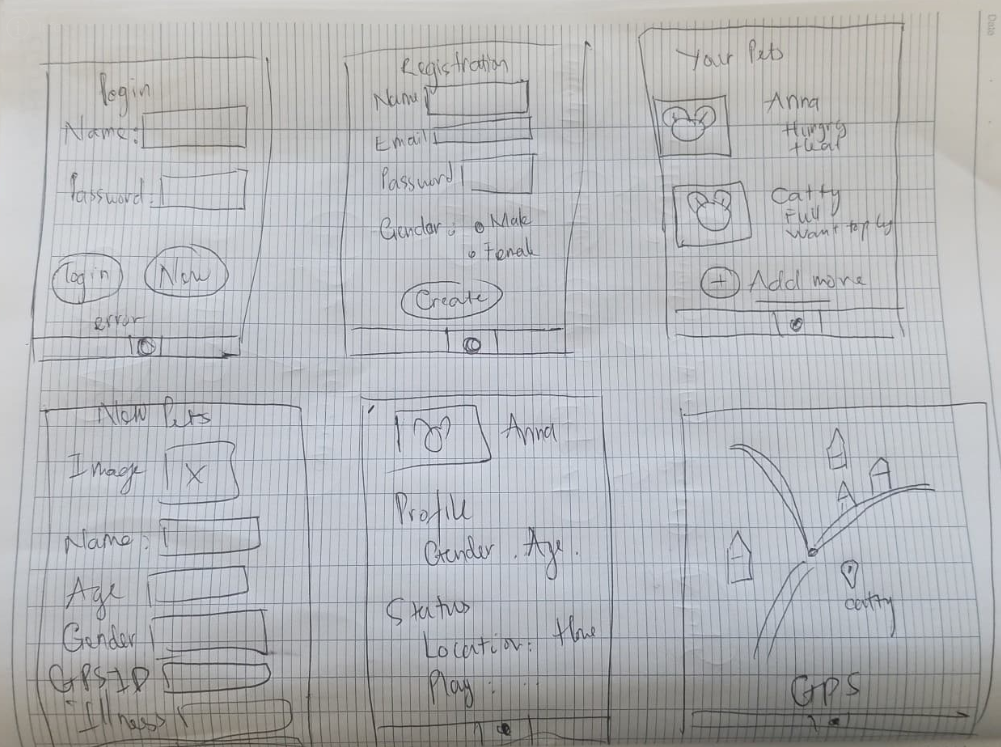 Date
Login
Name:
Password:
login
New
error
Registration
Name
Email
Password
Gender: Male
Female
Create
Your Pets
Anna
Hungry
Catty
Full
Want
+ Add more
New Pets
Image X
Name:
Age
Gender
GPS ID
Illness
Anna
Profile
Gender. Age.
Status
Location:
Play:
catty
GPS